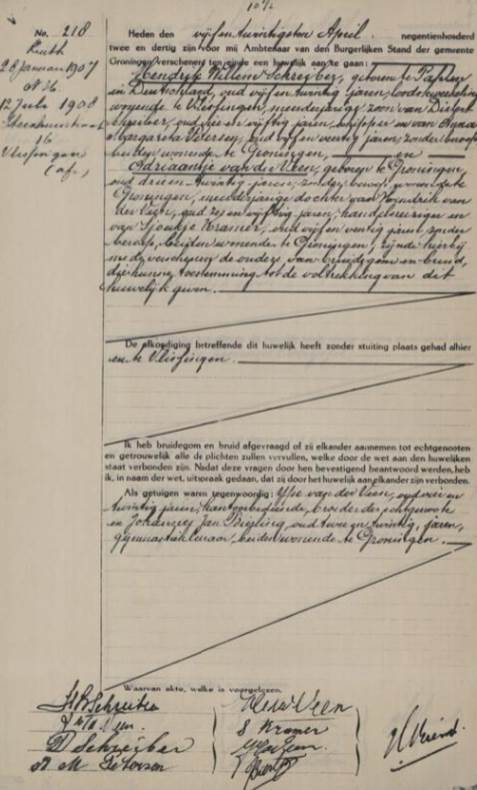 No. 218
28 Januari 1907
12 Juli 1908
16
Vlissingen
(af.)
Heden den vijfentwintigsten April negentienhonderd
twee en dertig zijn voor mij Ambtenaar van den Burgerlijken Stand der gemeente
Groningen verschenen ten einde een huwelijk aan te gaan:
Hendrik Willem Schreiber, geboren te
in Duitschland, oud vijf en twintig jaren,
wonende te Vlissingen, meerderjarige zoon van
Schreiber, oud en vijftig jaren, en van Anna
Margaretha Petersen, oud vijf en veertig jaren, zonder beroep
beiden wonende te Groningen, en
Adriaantje van der Veen, geboren te Groningen
oud drie en twintig jaren, zonder beroep, wonende te
Groningen, meerderjarige dochter van Hendrik van
der Veen, oud zes en vijftig jaren, handelsreiziger en
van Sjoukje Kramer, oud vijf en veertig jaren, zonder
beroep, beiden wonende te Groningen, zijnde hierbij
mede verschenen de ouders van bruidegom en bruid,
die hunne toestemming tot de voltrekking van dit
huwelijk geven.
De afkondiging betreffende dit huwelijk heeft zonder stuiting plaats gehad alhier
en te Vlissingen.
Ik heb bruidegom en bruid afgevraagd of zij elkander aannemen tot echtgenooten
en getrouwelijk alle de plichten zullen vervullen, welke door de wet aan den huwelijken
staat verbonden zijn. Nadat deze vragen door hen bevestigend beantwoord werden, heb
ik, in naam der wet, uitspraak gedaan, dat zij door het huwelijk aan elkander zijn verbonden.
Als getuigen waren tegenwoordig: van der Veen, oud
twintig jaren, kantoorbediende, broeder der echtgenoote
en Johannes Jan oud twee en twintig jaren,
beiden wonende te Groningen.
Waarvan akte, welke is voorgelezen.
Schreiber
Veen
S Kramer
D Schreiber
A M Petersen